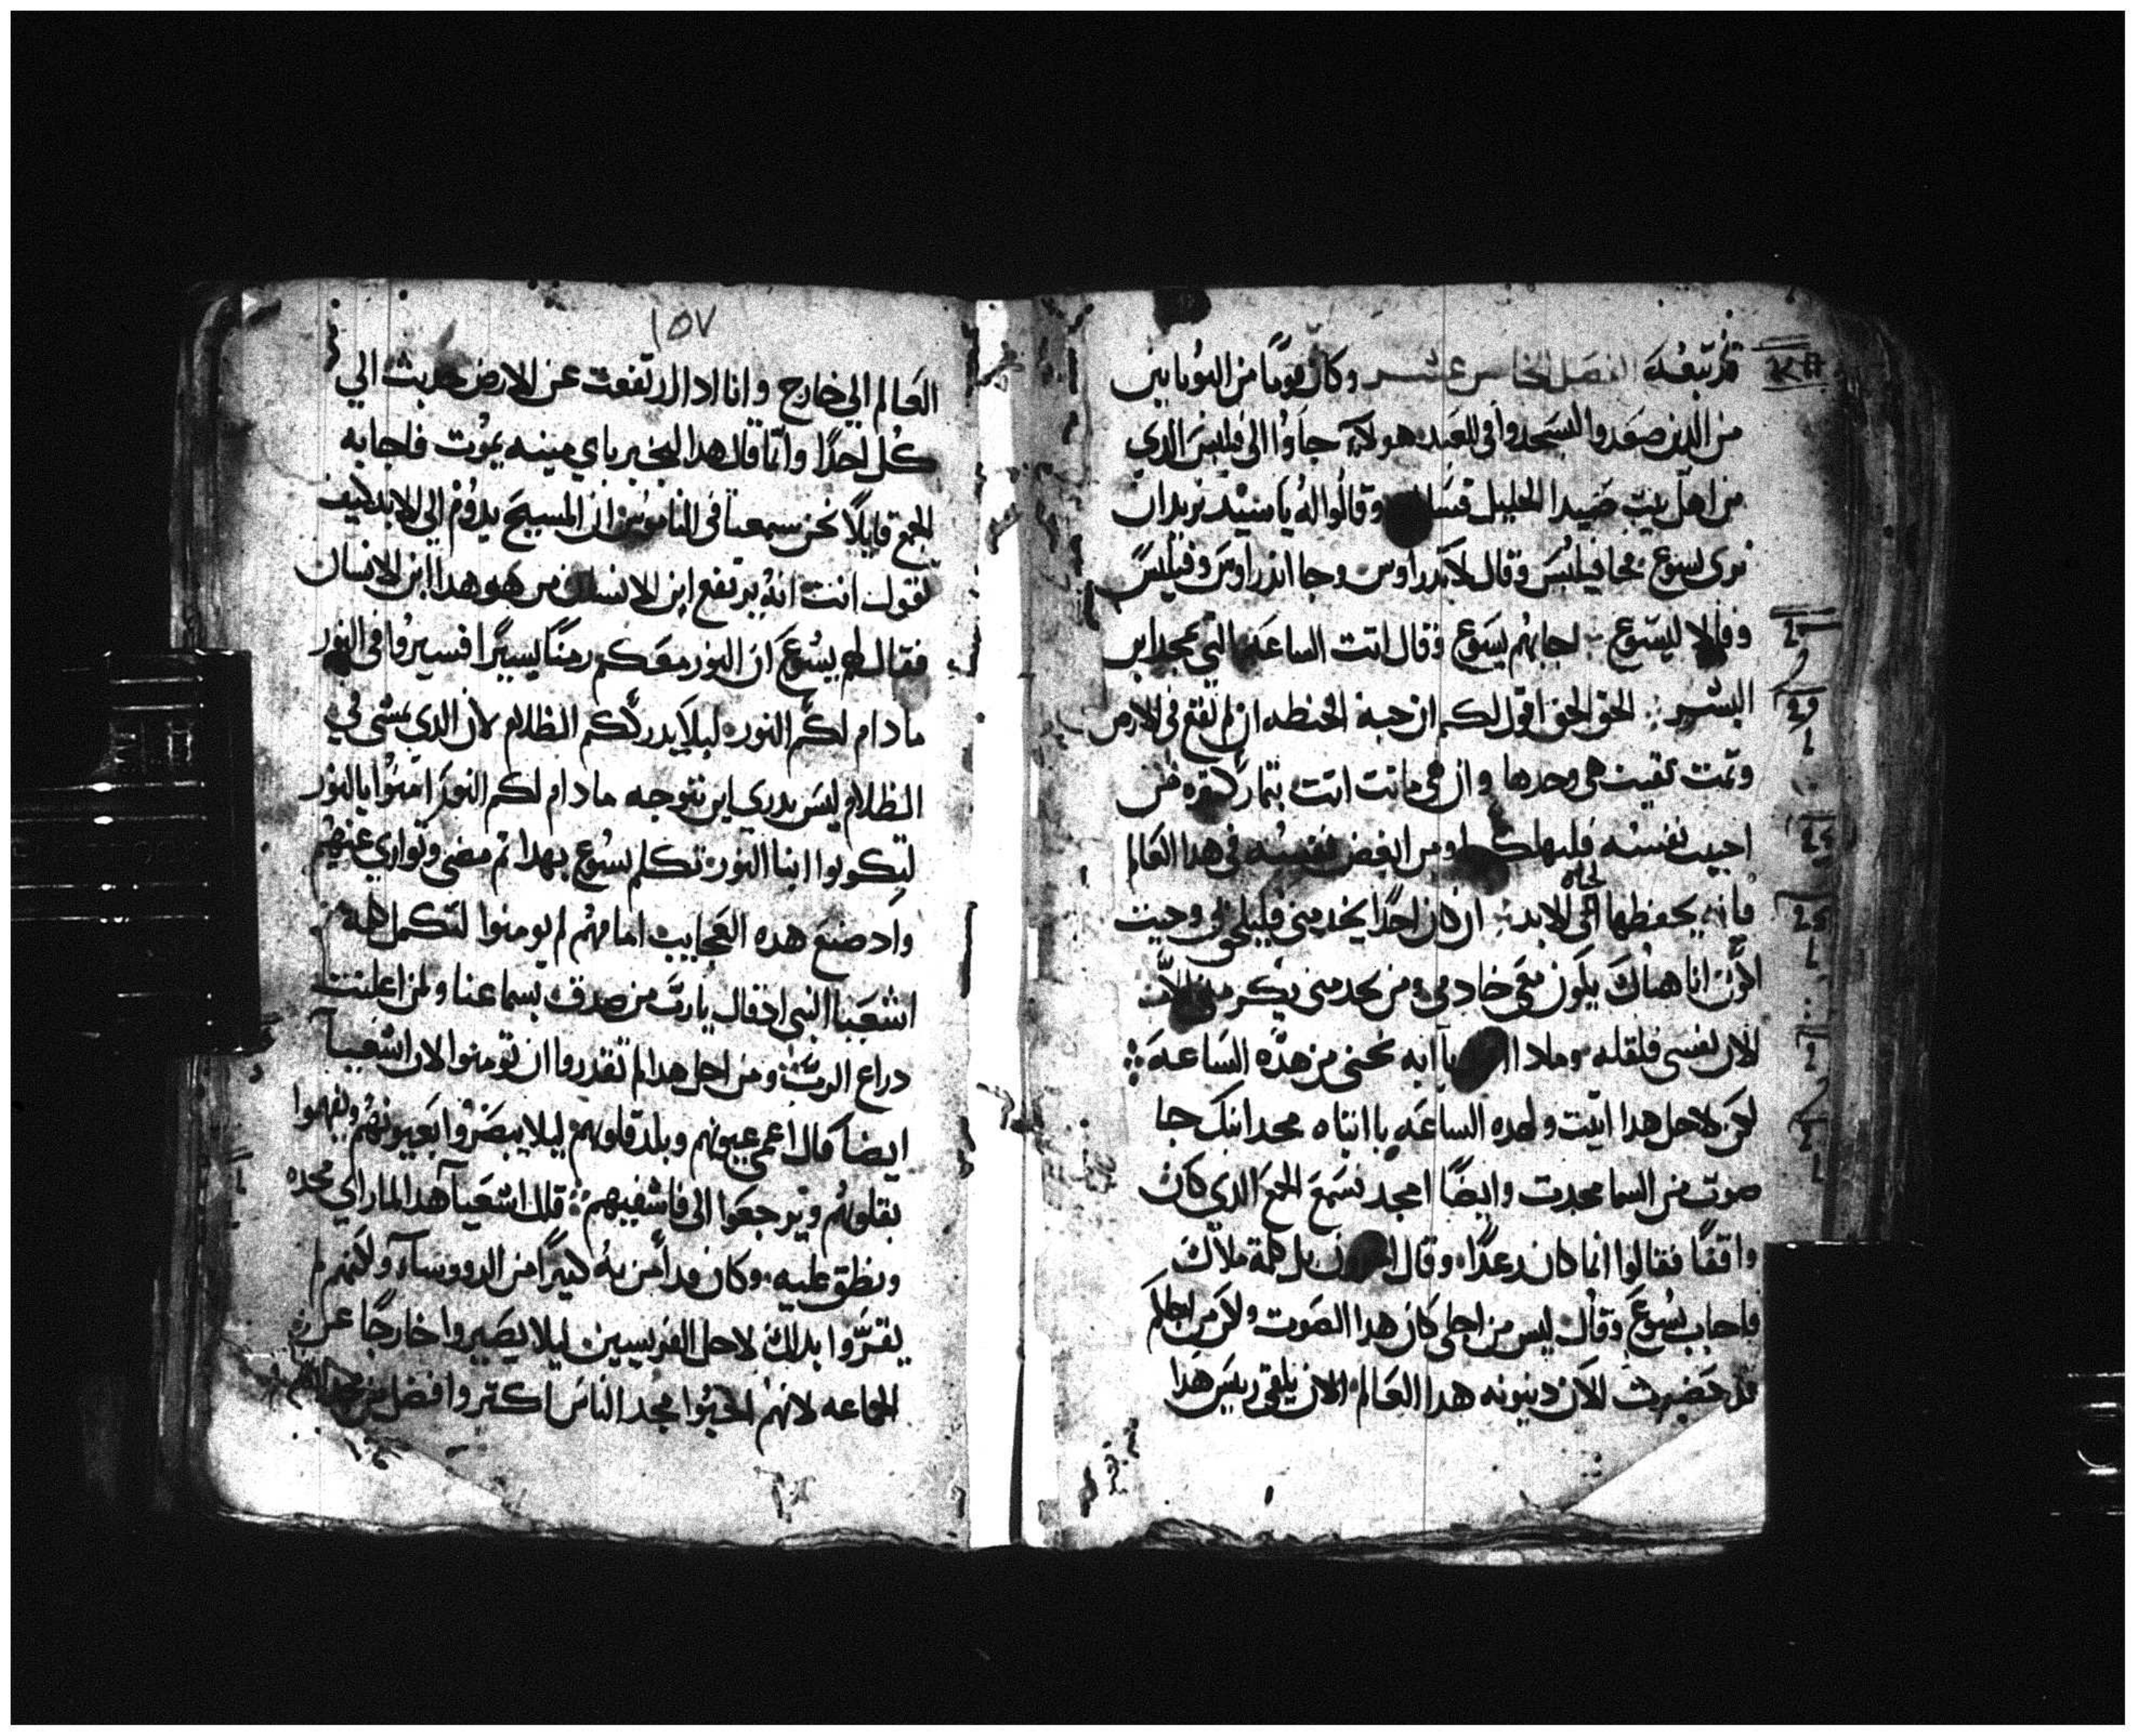 قد تبعه الفصل الخامس عشر وكان قوماً من اليونانيين
من الدين صعدوا ليسجدوا في العيد هولاء جاوا الى فيلبس الدي
من اهل بيت صيدا الجليل وقالوا له يا سيد نريد ان
نرى يسوع فجا فيلبس وقال لاندراوس وجا اندراوس وفيلبس
وقالا ليسوع اجابهم يسوع وقال اتت الساعه التي يمجد ابن
البشر الحق الحق اقول لكم ان حبة الحنطه ان لم تقع في الارض
وتمت بقيت هي وحدها وان هي ماتت اتت بتمار كتيره من
احب نفسه فليهلكها ومن ابغض نفسه في هدا العالم
فانه يحفظها لحياه الابد ان كان احدًا يخدمني فليلحق بي وحيت
اكون انا هناك يكون معي خادمي ومن يخدمني يكرمه الاب
الان نفسي قلقله وماداا يا ابه نجني من هده الساعه
لكن لاجل هدا اتيت ولهده الساعه يا ابتاه مجد ابنك جا
صوت من السما مجدت وايضًا امجد فسمع الجمع الدي كان
واقفًا فقالوا انما كان رعدًا وقال بل كلمة ملاك
فاجاب يسوع وقال ليس من اجلي كان هدا الصوت ولكن من اجلكم
قد حضرت الان دينونه هدا العالم الان يلقى رييس هدا
١٥٧
العالم الي خارج وانا ادا ارتفعت عن الارض جدبت الي
كل احدًا وانما قال هدا ليخبر باي ميته يموت فاجابه
الجمع قايلًا نحن سمعنا في الناموس ان المسيح يدوم الي الابد كيف
تقول انت انه يرتفع ابن الانسان من هو هدا ابن الانسان
فقال لهم يسوع ان النور معكم زمنًا يسيرًا فسيروا في النور
ما دام لكم النور ليلا يدرككم الظلام لان الدي يمشي في
الظلام ليس يدري اين يتوجه ما دام لكم النور امنوا بالنور
لتكونوا ابنا النور تكلم يسوع بهدا تم مضى وتوارى عنهم
واد صنع هده العجايب امامهم لم يومنوا لتكمل كلمة
اشعيا النبي اد قال يارب من صدق بسماعنا ولمن اعلنت
دراع الرب ومن اجل هدا لم تقدروا ان تومنوا لان اشعيا
ايضا قال اعمى عيونهم وبلد قلوبهم ليلا يبصروا بعيونهم ويفهموا
بقلوبهم ويرجعوا الى فاشفيهم قال اشعيا هدا لما راى مجده
ونطق عليه وكان قد امن به كتيرًا من الرووسآ ولكنهم لم
يقروا بدلك لاجل الفريسيين ليلا يصيروا خارجًا عن
الجماعه لانهم احبوا مجد الناس اكتر وافضل من مجد الله